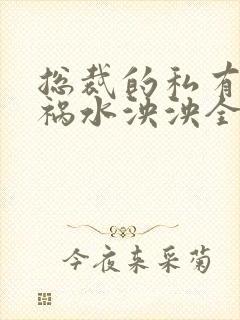 总裁的私有
祸水泱泱全
今夜来采菊